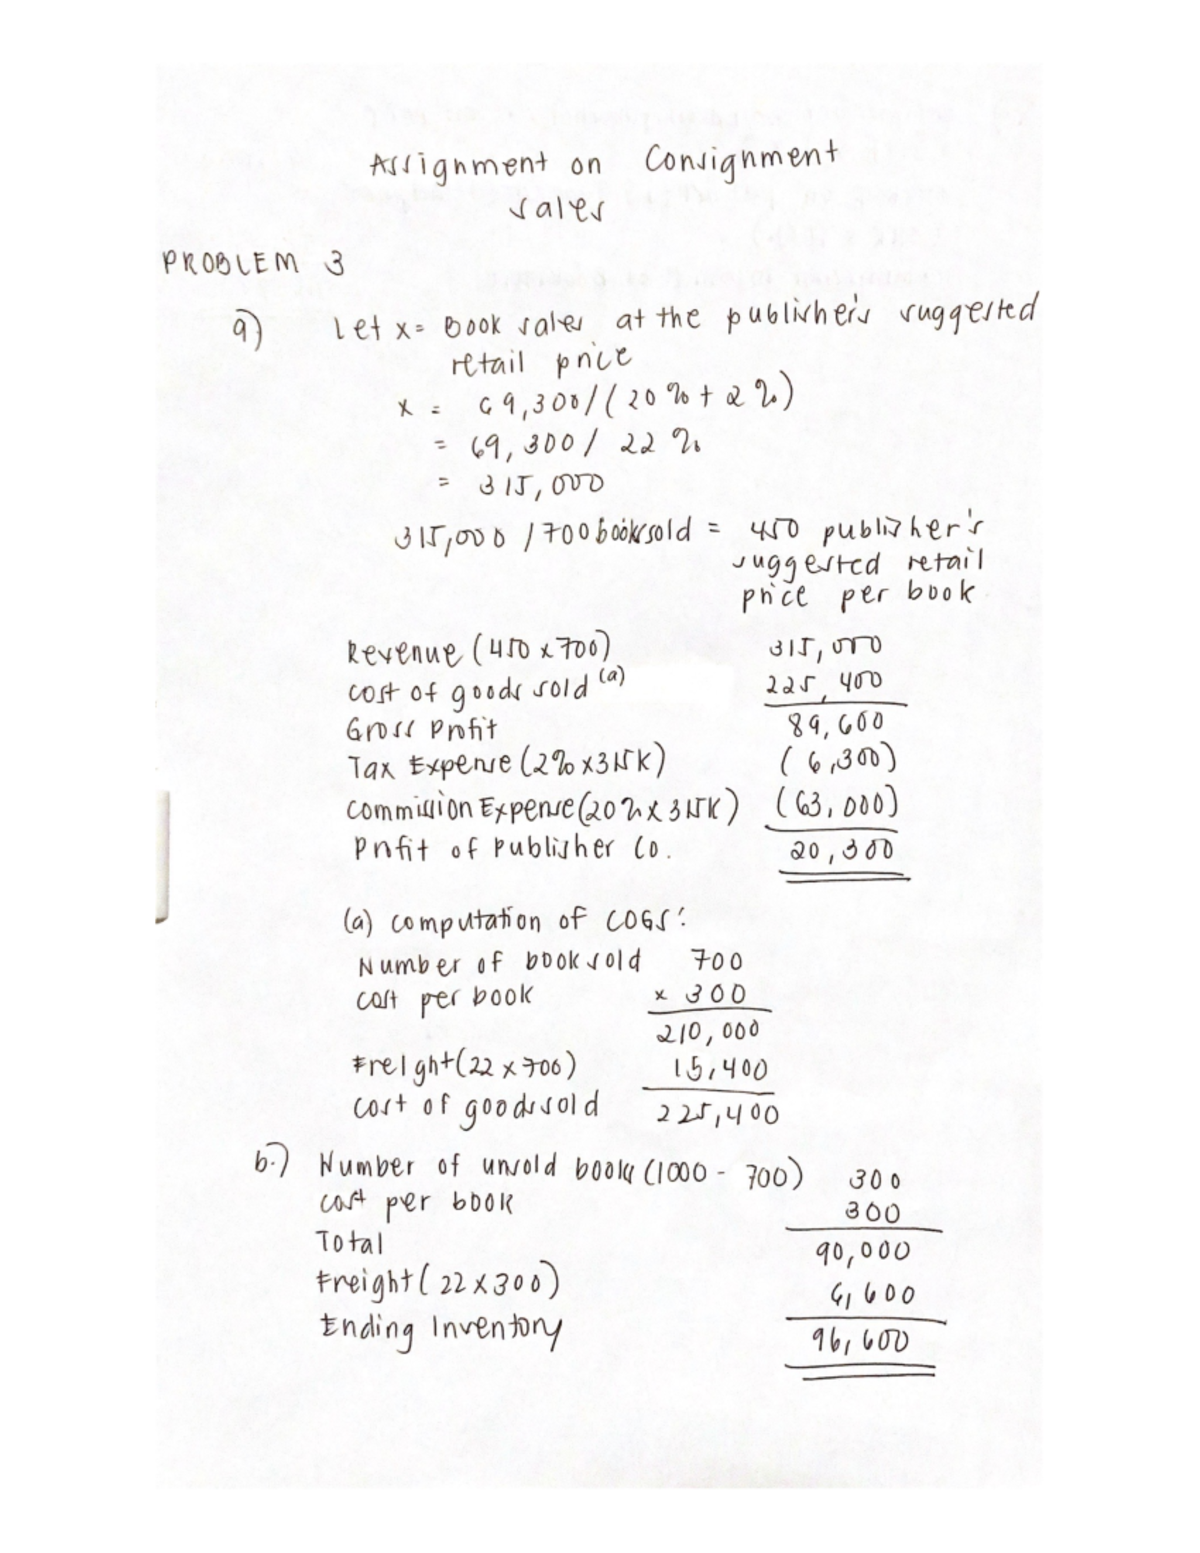 Assignment on Consignment
sales
PROBLEM 3
a) Let x = Book sales at the publisher's suggested
retail price
x = 69,300/(20% + 2%)
= 69,300/ 22%
= 315,000
315,000 / 700 books sold = 450 publisher's
suggested retail
price per book
Revenue (450 x 700) 315,000
cost of goods sold (a) 225,400
Gross Profit 89,600
Tax Expense (2% x 315K) (6,300)
Commission Expense (20% x 315K) (63,000)
Profit of Publisher Co. 20,300
(a) computation of COGS:
Number of book sold 700
cost per book x 300
210,000
Freight (22 x 700) 15,400
cost of goods sold 225,400
b.) Number of unsold books (1000 - 700) 300
cost per book 300
Total 90,000
Freight (22 x 300) 6,600
Ending Inventory 96,600